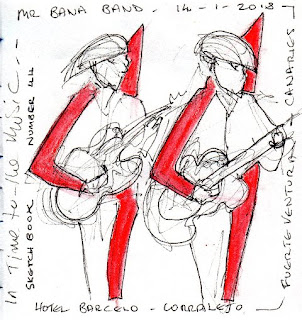 MR BANA BAND - 14 - 1 - 2018 -
IN TIME to the MUSIC - -
SKETCH BOOK NUMBER 44
FUERTEVENTURA - CANARIES
HOTEL BARCELO - CORRALEJO -